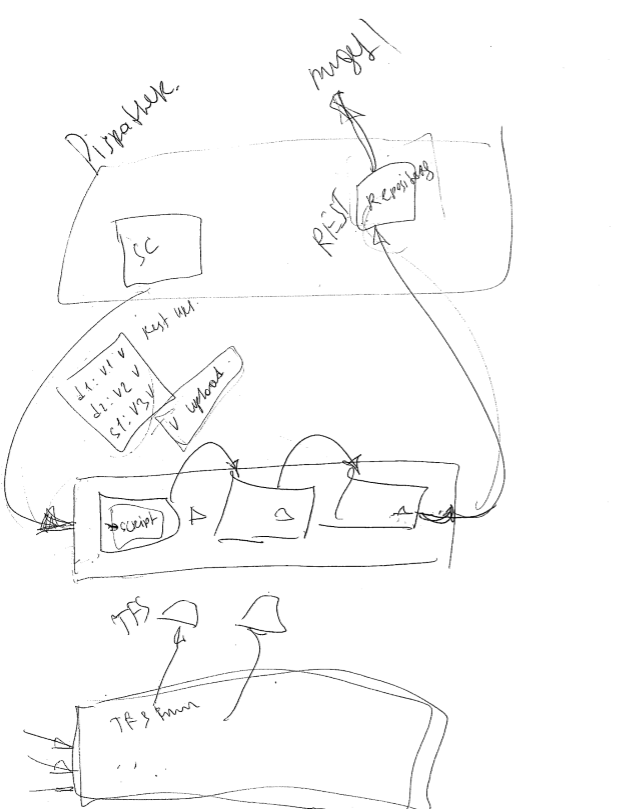 Dispather.
REST
Repository
SC
Rest url.
d1: v1 v
d2: v2 v
s1: v3 v
v upload.
script
TFS
TFS